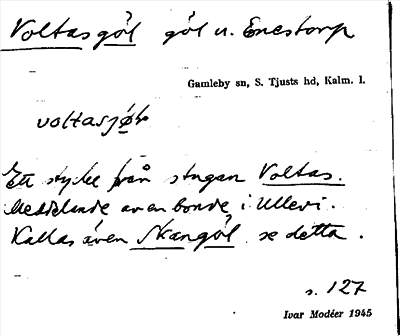 Voltasgöl göl u. Enestorp
Gamleby sn, S. Tjusts hd, Kalm. l.
voltasjø̄l
Ett stycke från stugan Voltas.
Meddelande av en bonde i Ullevi.
Kallas även Skangöl se detta.
s. 127
Ivar Modéer 1945